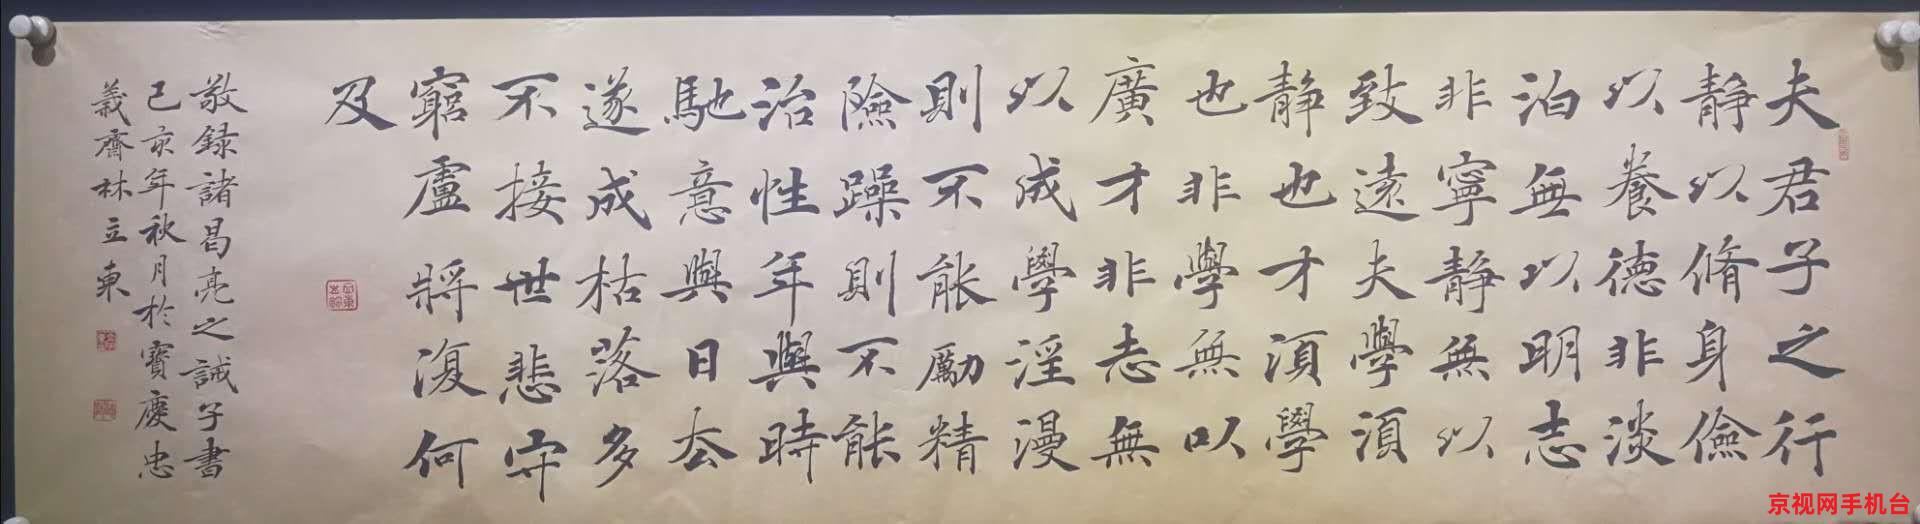 夫君子之行
静以脩身儉
以養德非淡
泊無以明志
非寧静無以
致遠夫學湏
静也才湏學
也非學無以
廣才非志無
以成學淫漫
則不能勵精
險躁則不能
治性年與時
馳意與日去
遂成枯落多
不接世悲守
窮盧將復何
及
敬録諸曷亮之誡子書
己亥年秋月於寶慶忠
義齊林立東
京视网手机台